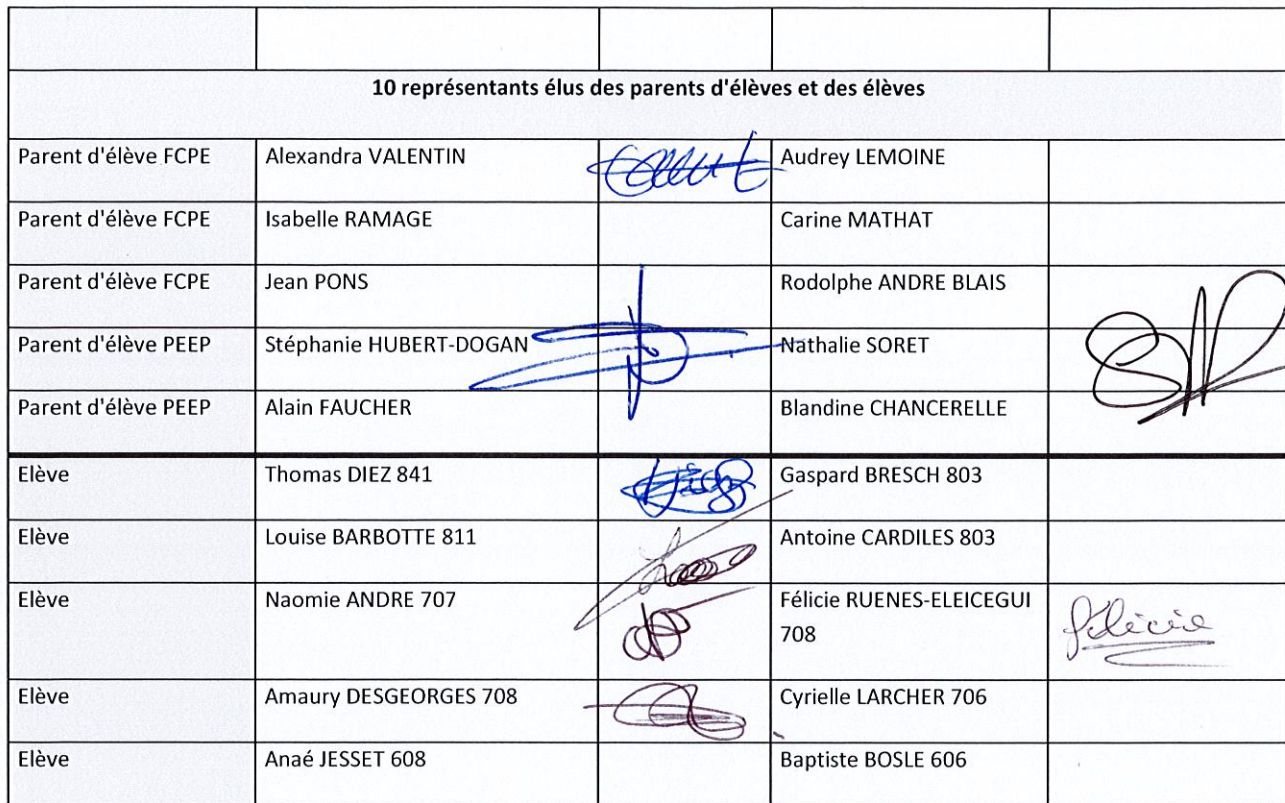 10 représentants élus des parents d'élèves et des élèves
Parent d'élève FCPE Alexandra VALENTIN Audrey LEMOINE
Parent d'élève FCPE Isabelle RAMAGE Carine MATHAT
Parent d'élève FCPE Jean PONS Rodolphe ANDRE BLAIS
Parent d'élève PEEP Stéphanie HUBERT-DOGAN Nathalie SORET
Parent d'élève PEEP Alain FAUCHER Blandine CHANCERELLE
Elève Thomas DIEZ 841 Gaspard BRESCH 803
Elève Louise BARBOTTE 811 Antoine CARDILES 803
Elève Naomie ANDRE 707 Félicie RUENES-ELEICEGUI
708
félicie
Elève Amaury DESGEORGES 708 Cyrielle LARCHER 706
Elève Anaé JESSET 608 Baptiste BOSLE 606